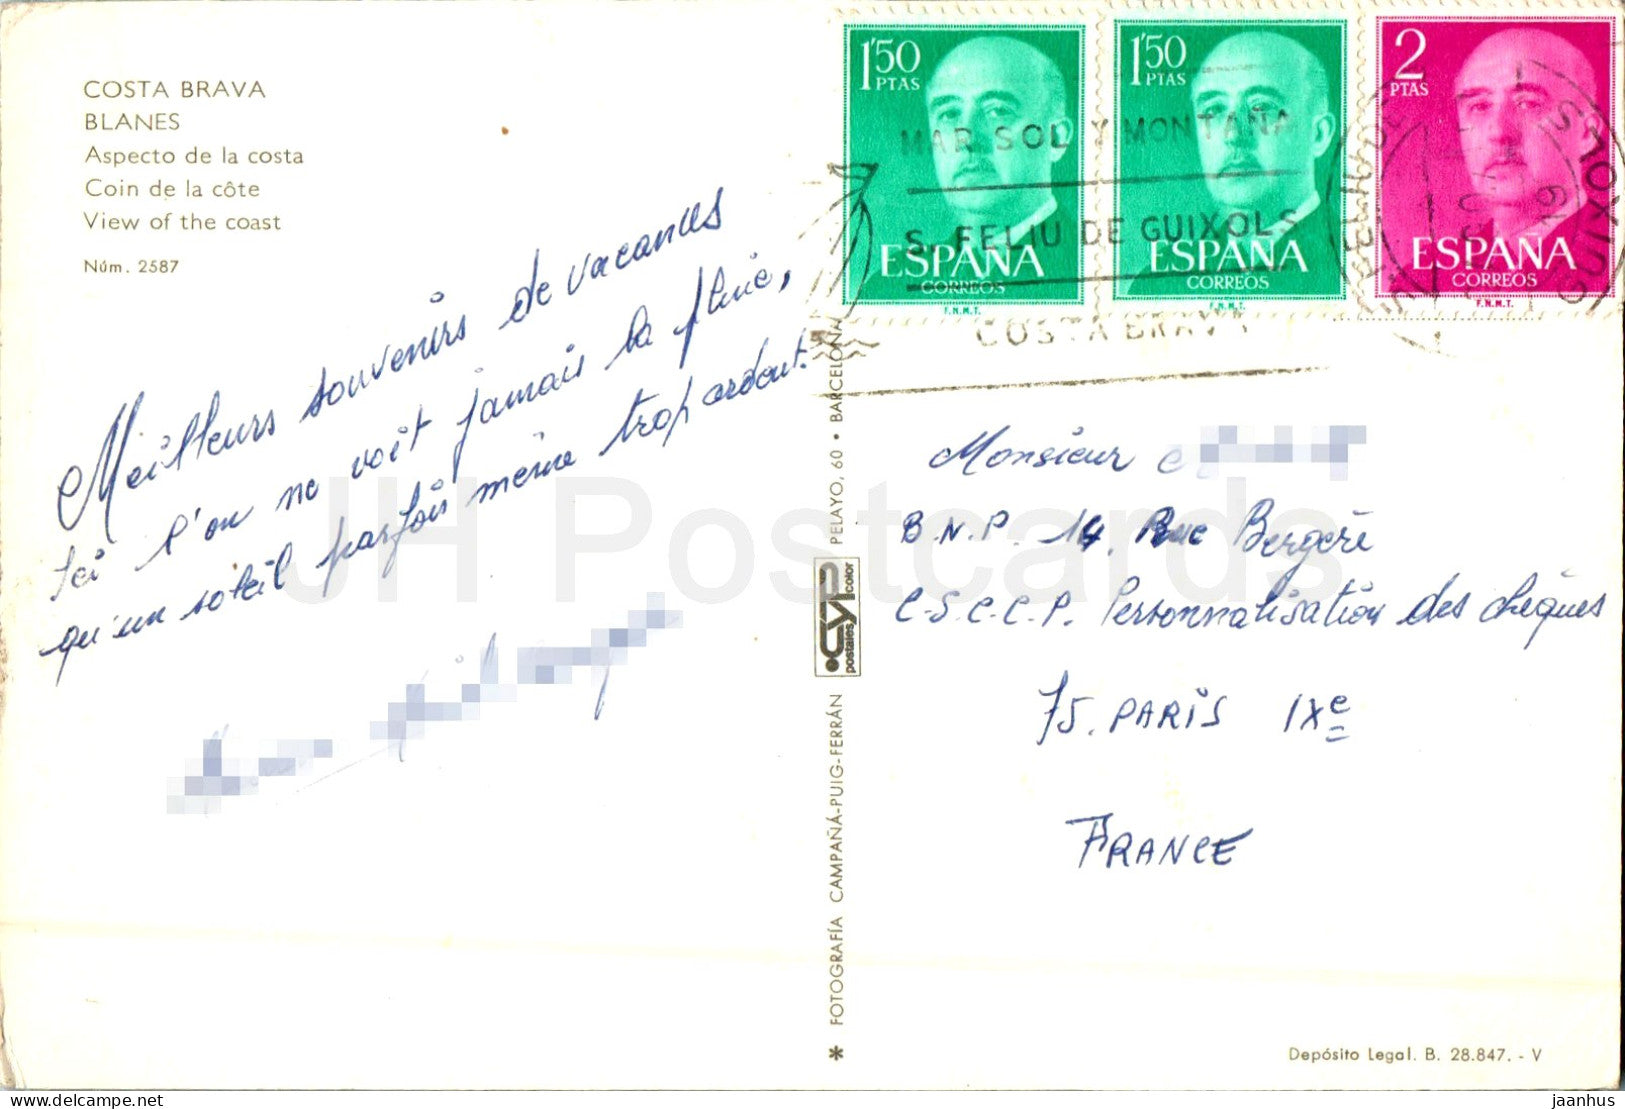 COSTA BRAVA
BLANES
Aspecto de la costa
Coin de la côte
View of the coast
Núm. 2587
Meilleurs souvenirs de vacances
Ici l'on ne voit jamais la pluie,
qu'un soleil parfois même trop ardent.
FOTOGRAFÍA CAMPAÑÁ-PUIG-FERRÁN
CYP
postales color
PELAYO, 60 • BARCELONA
1'50
PTAS
ESPAÑA
CORREOS
F.N.M.T.
1'50
PTAS
ESPAÑA
CORREOS
F.N.M.T.
2
PTAS
ESPAÑA
CORREOS
F.N.M.T.
MAR SOL Y MONTAÑA
S. FELIU DE GUIXOLS
COSTA BRAVA
Monsieur
B.N.P. 14, Rue Bergère
C.S.C.C.P. Personnalisation des chèques
75. PARIS IXe
FRANCE
Depósito Legal. B. 28.847. - V
JH Postcards
eu.jhpostcards.com
jaanhus